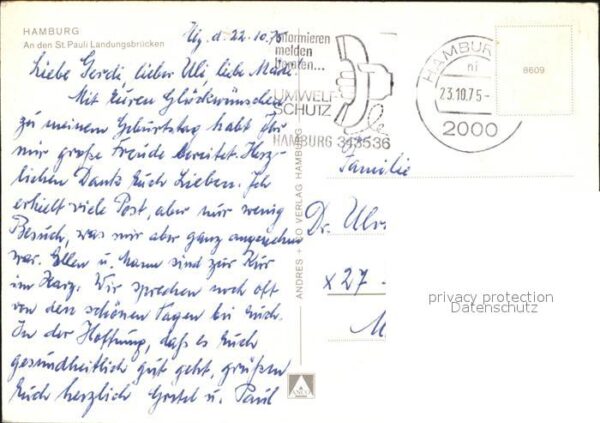 HAMBURG
An den St. Pauli Landungsbrücken
d. 22.10.75
Liebe Gerdi, lieber Uli, liebe
Mit Euren Glückwünschen
zu meinem Geburtstag habt Ihr
mir große Freude bereitet. Herz-
lichen Dank Euch Lieben. Ich
erhielt viele Post, aber nur wenig
Besuch, was mir aber ganz angenehm
war. Ellen u. Mann sind zur Kur
im Harz. Wir sprechen noch oft
von den schönen Tagen bei Euch.
In der Hoffnung, daß es Euch
gesundheitlich gut geht, grüßen
Euch herzlich Gretel u. Paul
informieren
melden
beraten...
UMWELT
SCHUTZ
HAMBURG 343536
HAMBURG
ni
23.10.75-
2000
8609
ANDRES + CO VERLAG HAMBURG
Familie
Dr. Ulr
x27 -
M
privacy protection
Datenschutz